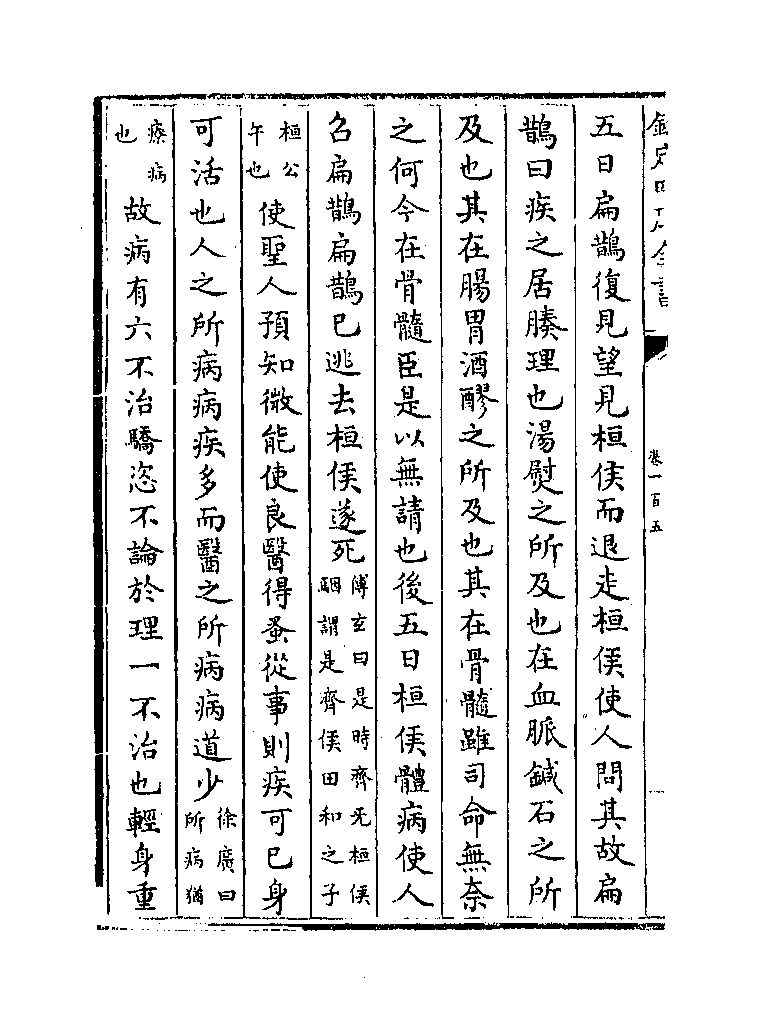 欽定四庫全書
卷一百五
五日扁鵲復見望見桓侯而退走桓侯使人問其故扁
鵲曰疾之居腠理也湯熨之所及也在血脈鍼石之所
及也其在腸胃酒醪之所及也其在骨髓雖司命無奈
之何今在骨髓臣是以無請也後五日桓侯體病使人
召扁鵲扁鵲已逃去桓侯遂死傅玄曰是時齊无桓侯
駰謂是齊侯田和之子
桓公
午也使聖人預知微能使良醫得蚤從事則疾可已身
可活也人之所病病疾多而醫之所病病道少徐廣曰
所病猶
療病
也故病有六不治驕恣不論於理一不治也輕身重